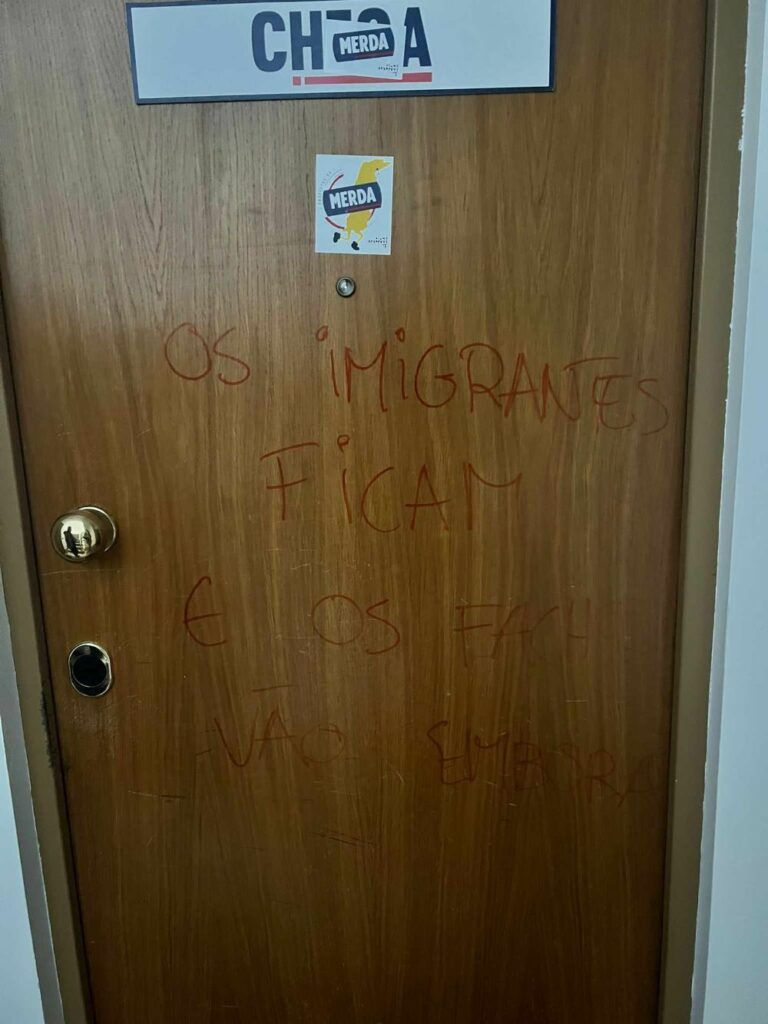 CH MERDA A
MERDA
OS IMIGRANTES
FICAM
E OS FACH
VÃO EMBORA